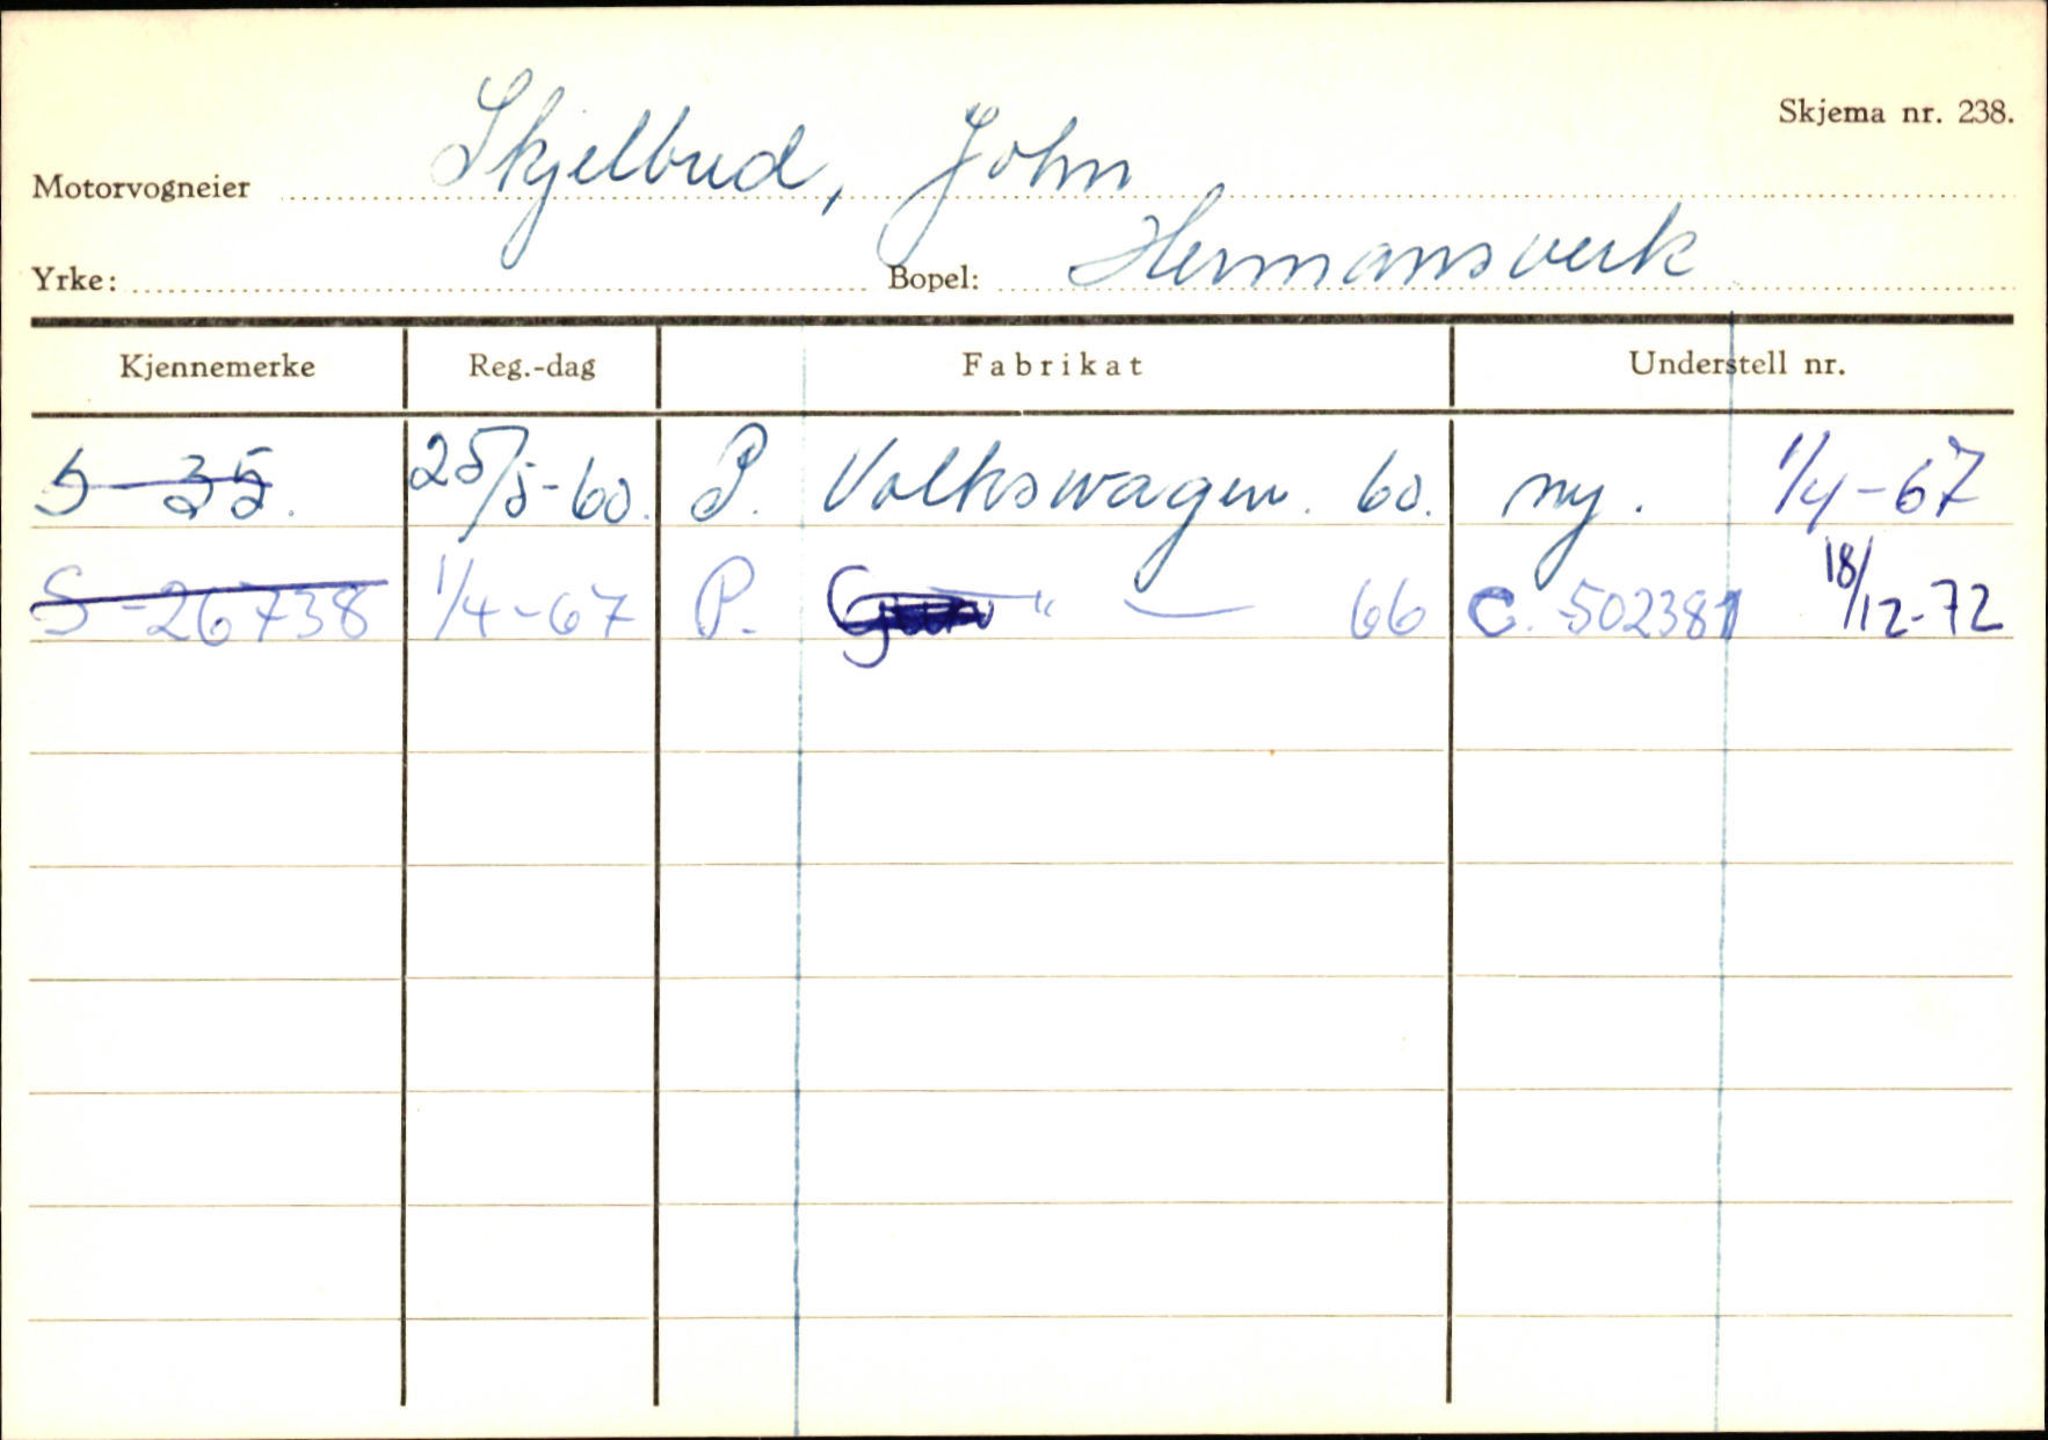 Skjema nr. 238.
Motorvogneier Skjelbred, John
Yrke: Bopel: Hermansverk
Kjennemerke Reg.-dag Fabrikat Understell nr.
S-35. 25/5-60. P. Volkswagen. 60. ny. 1/4-67
S-26738 1/4-67 P. — " — 66 C. 502381 18/12-72